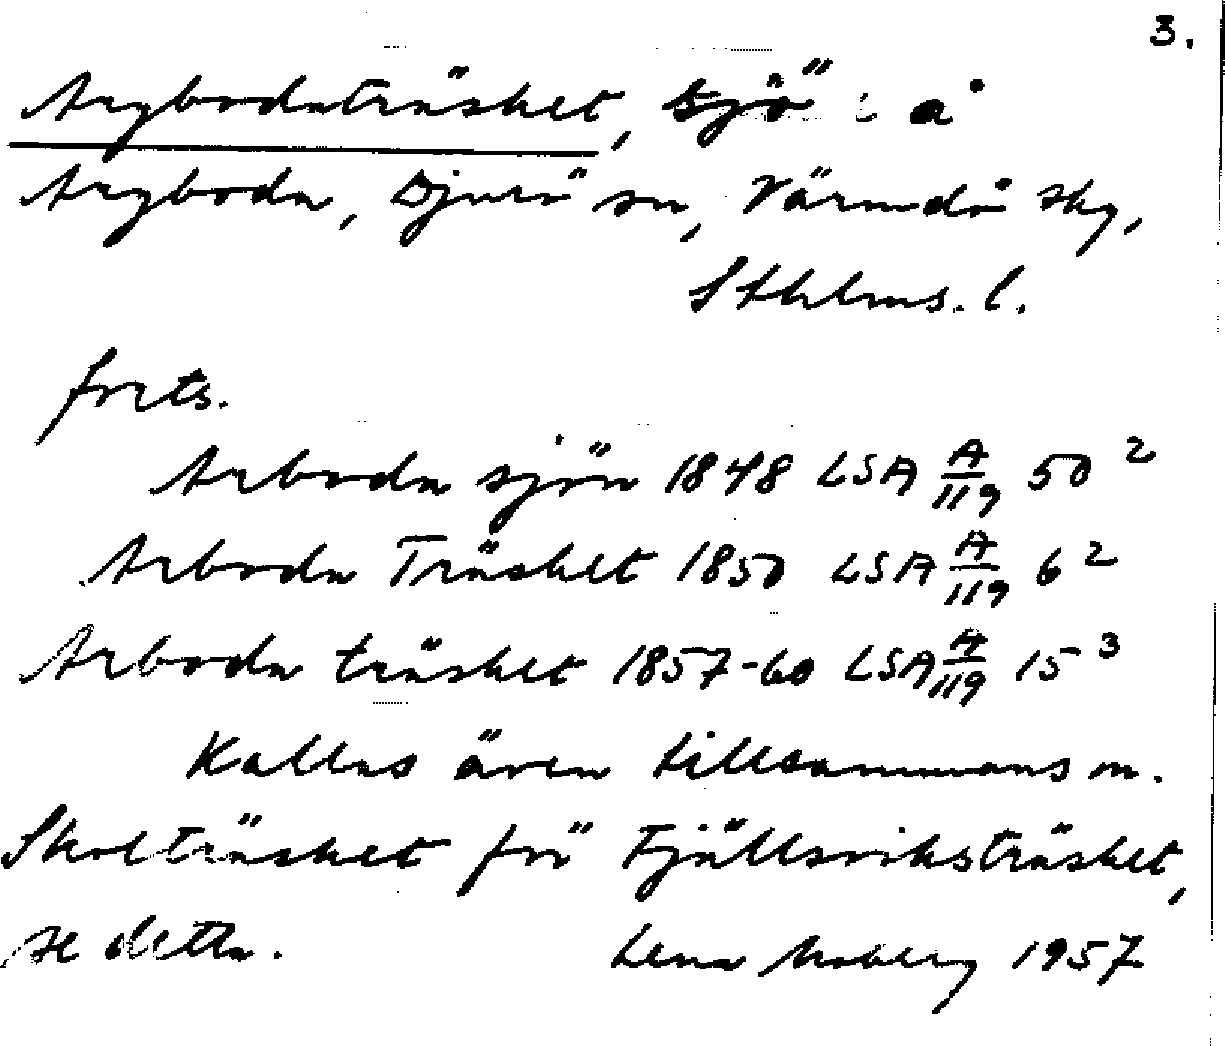 3.
Argbodaträsket, sjö i å
Argboda, Djurö sn, Värmdö skg,
Sthlms. l.
forts.
Arboda sjön 1848 LSA A/119 50²
Arboda Träsket 1850 LSA A/119 6²
Arboda träsket 1857-60 LSA A/119 15³
Kallas även tillsammans m.
Skolträsket för Fjällsviksträsket,
se detta. Lena Moberg 1957